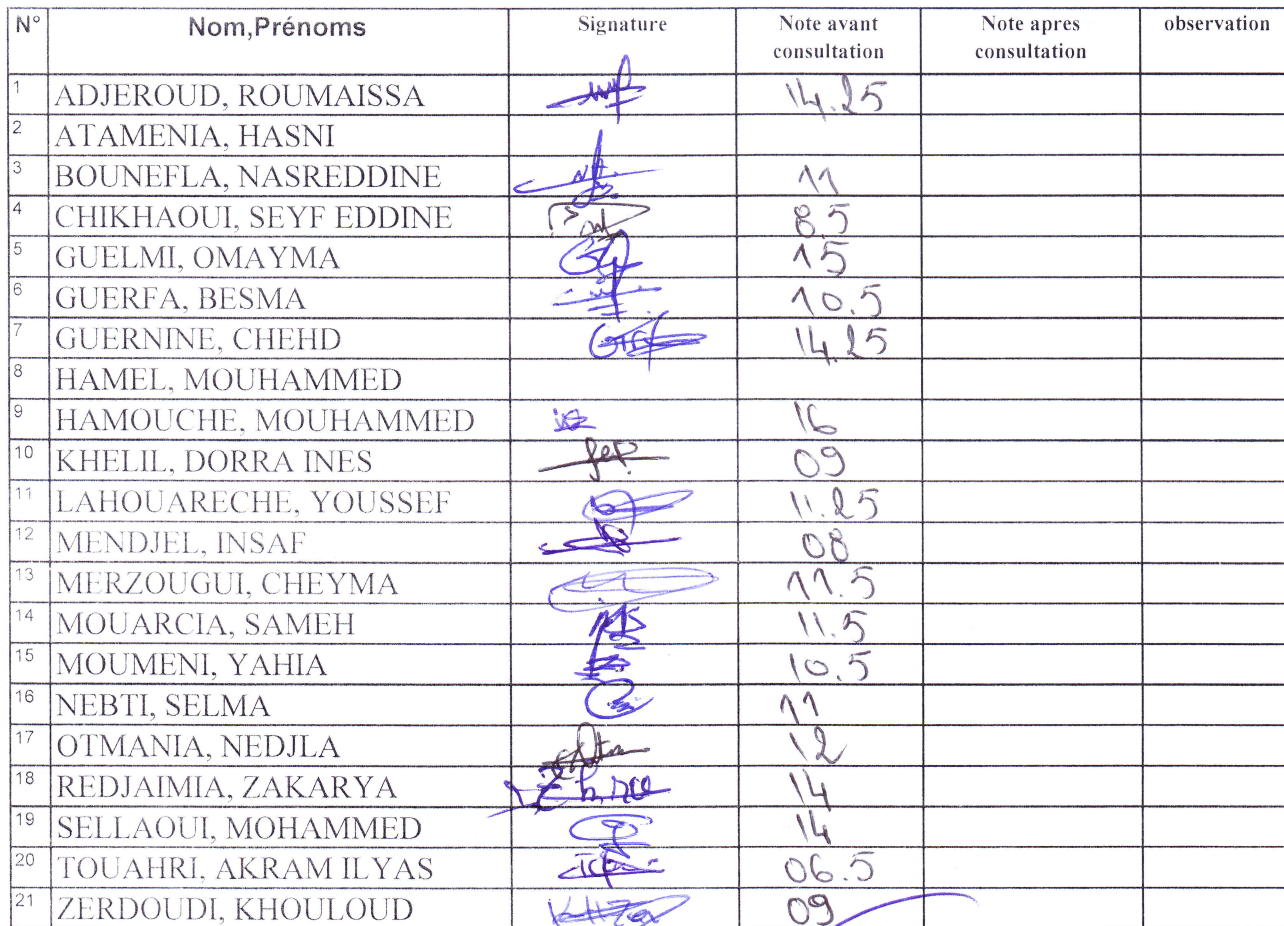 N° Nom,Prénoms Signature Note avant consultation Note apres consultation observation
1 ADJEROUD, ROUMAISSA 14.25
2 ATAMENIA, HASNI
3 BOUNEFLA, NASREDDINE 11
4 CHIKHAOUI, SEYF EDDINE 8.5
5 GUELMI, OMAYMA 15
6 GUERFA, BESMA 10.5
7 GUERNINE, CHEHD 14.25
8 HAMEL, MOUHAMMED
9 HAMOUCHE, MOUHAMMED 16
10 KHELIL, DORRA INES 09
11 LAHOUARECHE, YOUSSEF 11.25
12 MENDJEL, INSAF 08
13 MERZOUGUI, CHEYMA 11.5
14 MOUARCIA, SAMEH 11.5
15 MOUMENI, YAHIA 10.5
16 NEBTI, SELMA 11
17 OTMANIA, NEDJLA 12
18 REDJAIMIA, ZAKARYA 14
19 SELLAOUI, MOHAMMED 14
20 TOUAHRI, AKRAM ILYAS 06.5
21 ZERDOUDI, KHOULOUD 09